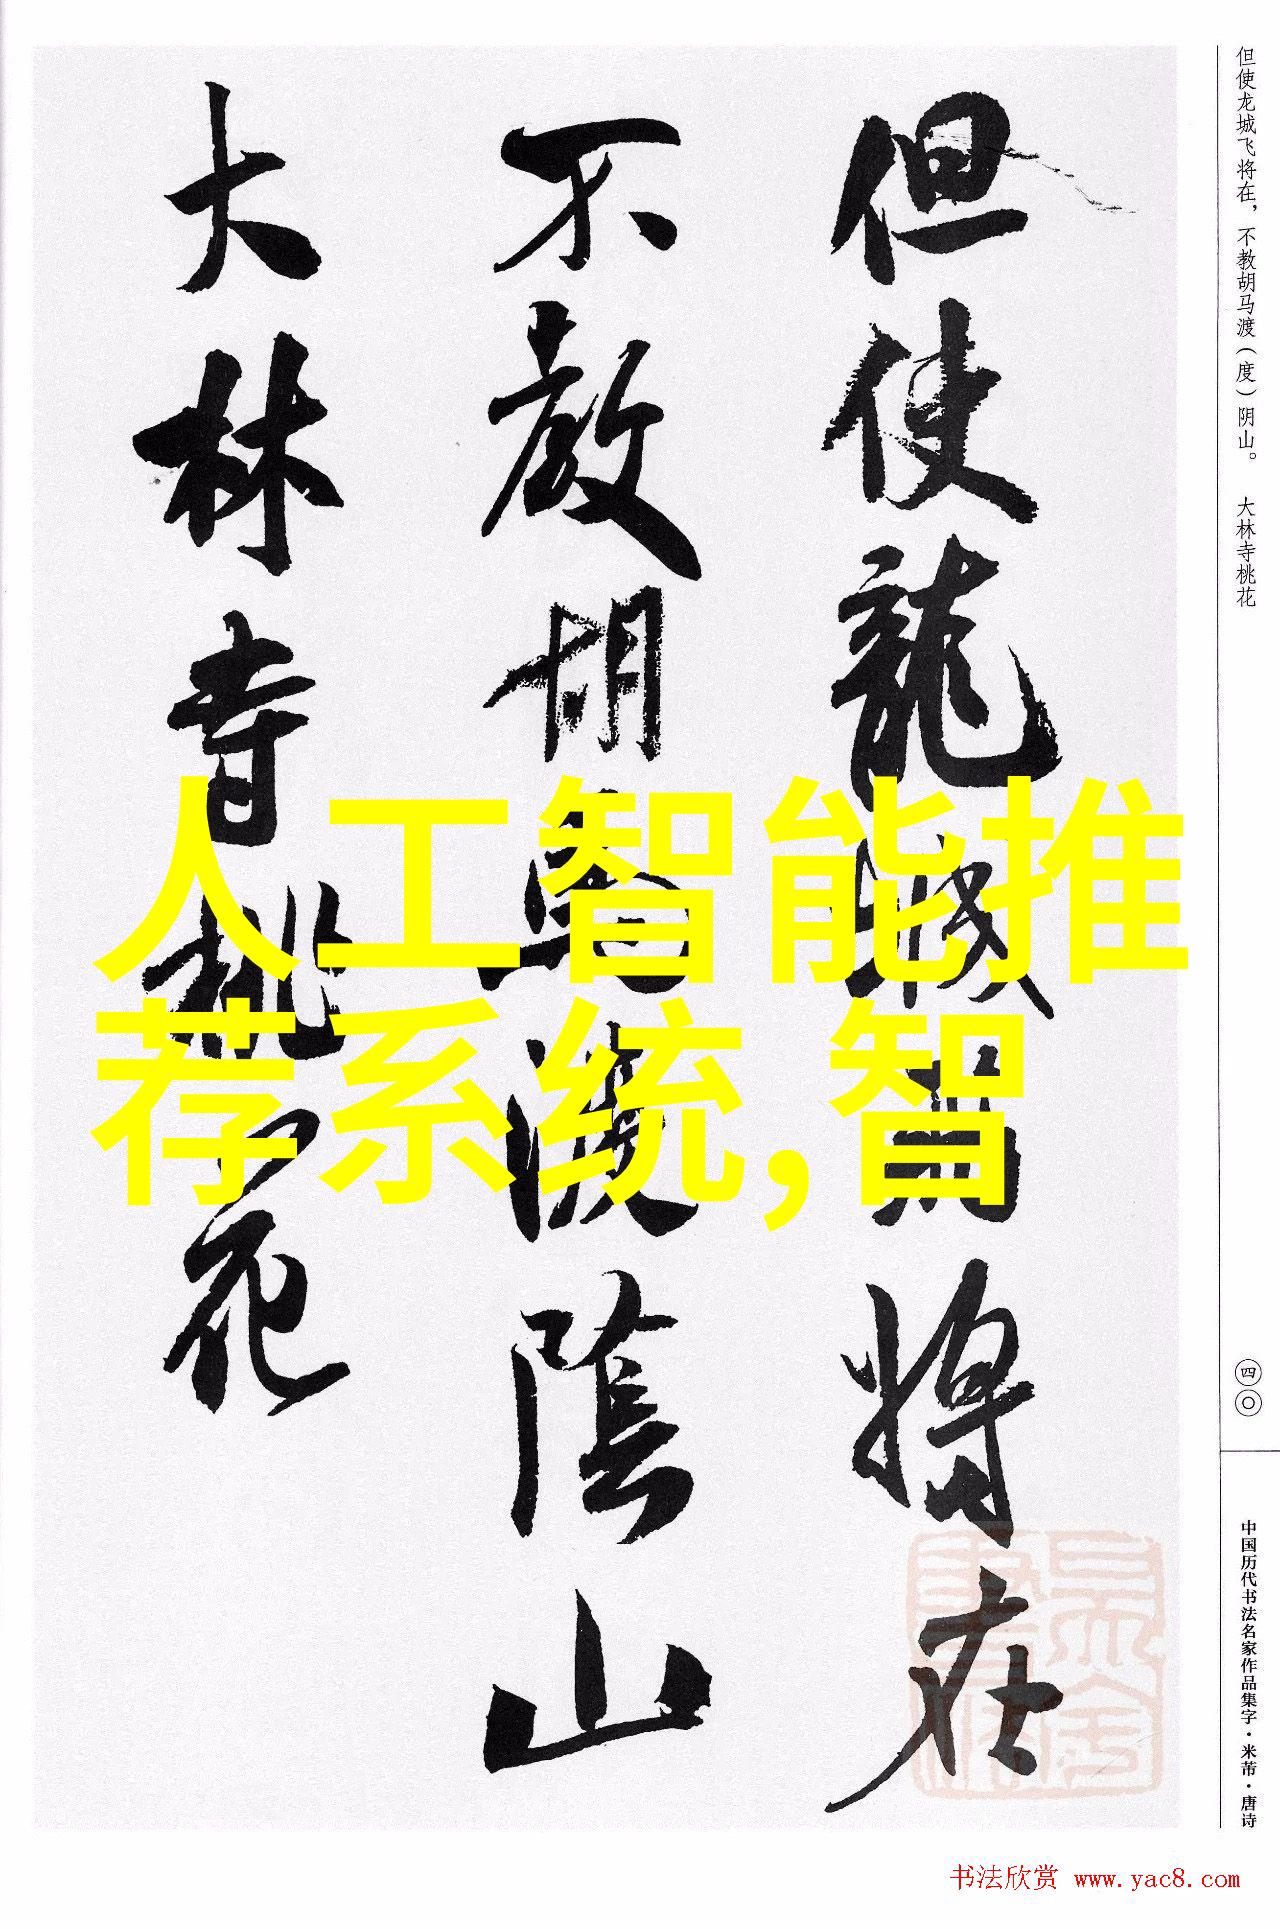 但使龙城飞将在，不教胡马渡（度）阴山。 大林寺桃花
但使龍城飛將在
不教胡馬渡陰山
大林寺桃花
人工智能推
荐系统,智
四〇
中国历代书法名家作品集字·米芾·唐诗
书法欣赏 www.yac8.com